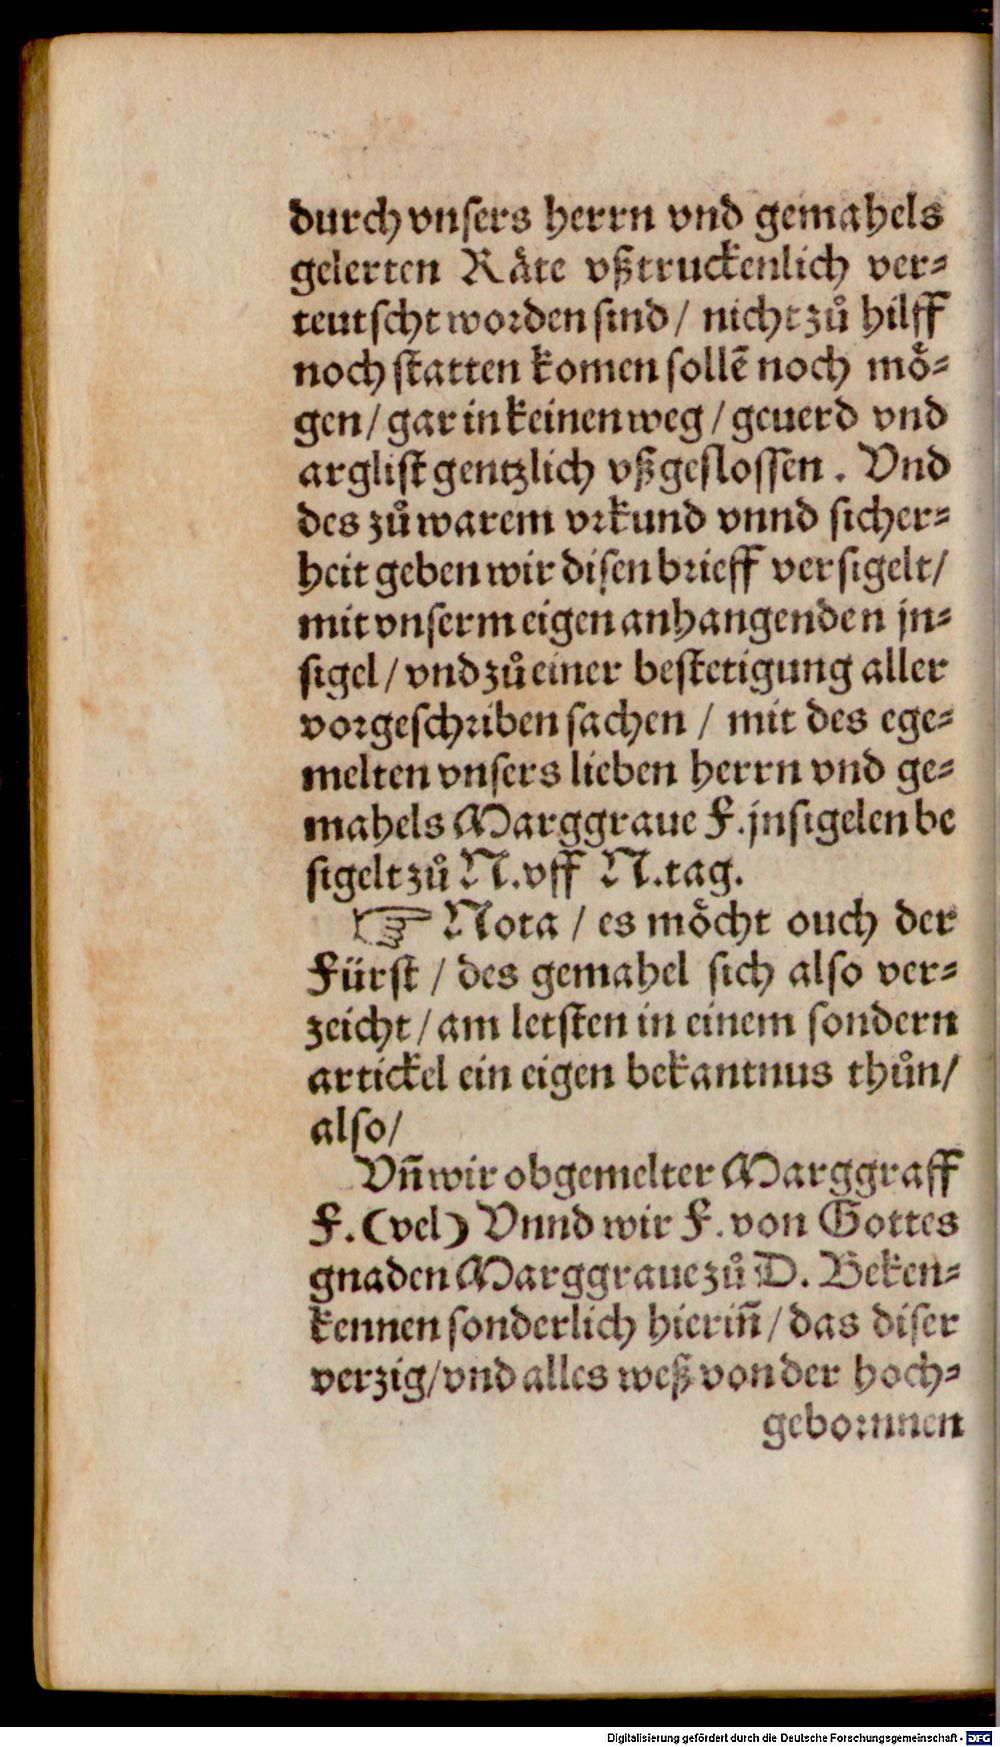 durch vnsers herrn vnd gemahels
gelerten Räte vßtruckenlich ver-
teutscht worden sind / nicht zů hilff
noch statten komen sollẽ noch mö-
gen / gar in keinen weg / geuerd vnd
arglist gentzlich vßgeslossen. Vnd
des zů warem vrkund vnnd sicher-
heit geben wir disen brieff versigelt /
mit vnserm eigen anhangenden jn-
sigel / vnd zů einer bestetigung aller
vorgeschriben sachen / mit des ege-
melten vnsers lieben herrn vnd ge-
mahels Marggraue F. jnsigelen be
sigelt zů N. vff N. tag.
☞ Nota / es möcht ouch der
Fürst / des gemahel sich also ver-
zeicht / am letsten in einem sondern
artickel ein eigen bekantnus thůn /
also /
Vñ wir obgemelter Marggraff
F. (vel) Vnnd wir F. von Gottes
gnaden Marggraue zů D. Beken-
kennen sonderlich hieriñ / das diser
verzig / vnd alles weß von der hoch-
gebornnen
Digitalisierung gefördert durch die Deutsche Forschungsgemeinschaft - DFG